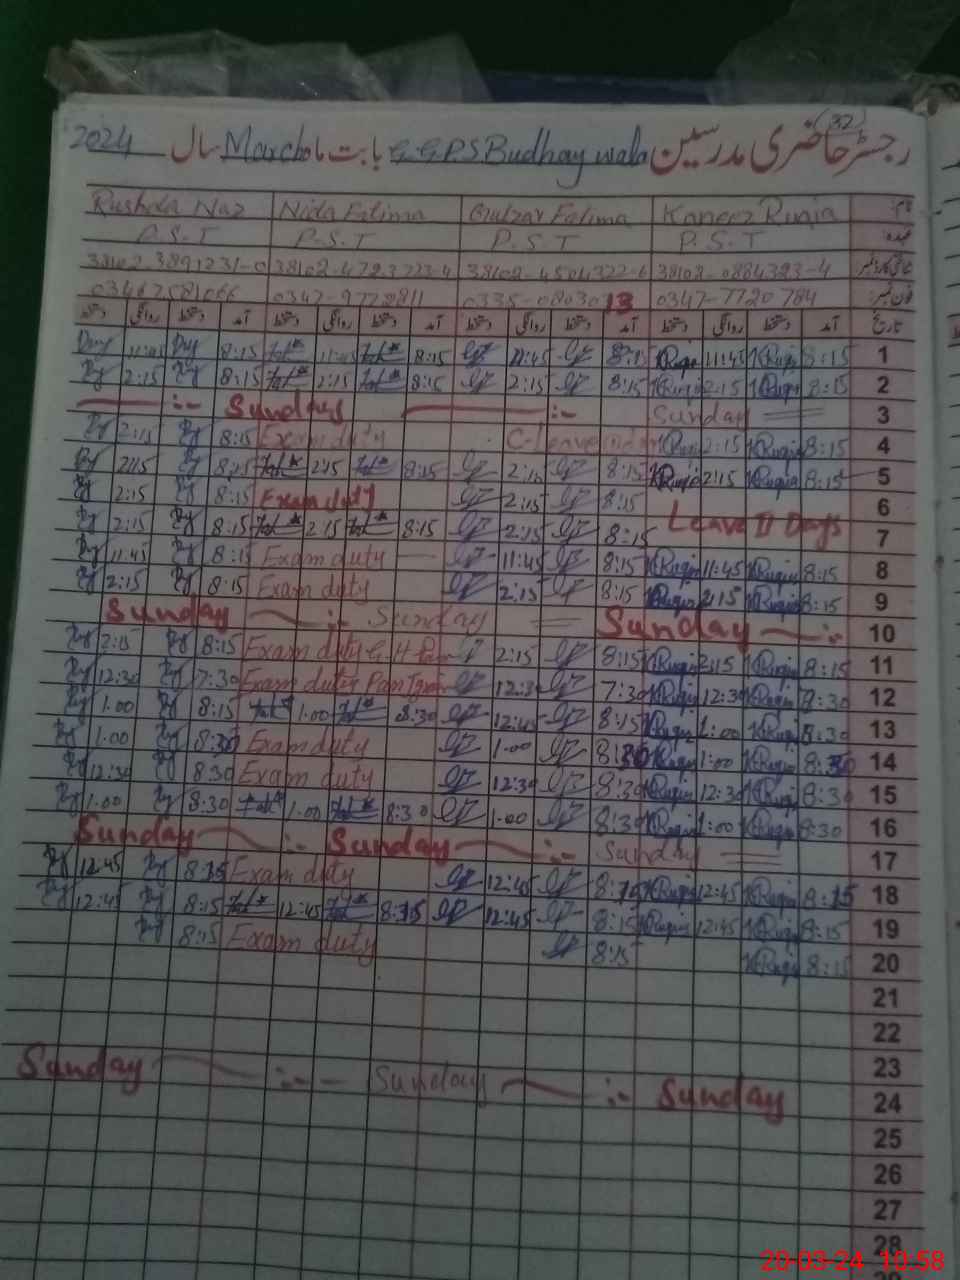 (32)
رجسٹر حاضری مدرسین G.G.P.S Budhay wala بابت ماہ March سال 2024
Rushda Naz Nida Fatima Gulzar Fatima Kaneez Ruqia نام:
P.S.T P.S.T P.S.T P.S.T عہدہ:
38102-3891231-0 38102-4723723-4 38102-4504322-6 38102-0884323-4
03467581066 0347-9772811 0335-0803013 0347-7720784 فون نمبر:
دستخط روانگی دستخط آمد دستخط روانگی دستخط آمد دستخط روانگی دستخط آمد دستخط روانگی دستخط آمد تاریخ
11:45 8:15 11:45 8:15 11:45 8:15 Ruqia 11:45 Ruqia 8:15 1
2:15 8:15 2:15 8:15 2:15 8:15 Ruqia 2:15 Ruqia 8:15 2
Sunday Sunday 3
2:15 8:15 Exam duty C-Leave Ruqia 2:15 Ruqia 8:15 4
2:15 8:15 2:15 8:15 2:15 8:15 Ruqia 2:15 Ruqia 8:15 5
2:15 8:15 Exam duty 2:15 8:15 6
Leave II Days
2:15 8:15 2:15 8:15 2:15 8:15 7
11:45 8:15 Exam duty 11:45 8:15 Ruqia 11:45 Ruqia 8:15 8
2:15 8:15 Exam duty 2:15 8:15 Ruqia 2:15 Ruqia 8:15 9
Sunday Sunday Sunday 10
2:15 8:15 Exam duty G.H 2:15 8:15 Ruqia 2:15 Ruqia 8:15 11
12:30 7:30 Exam duty 12:30 7:30 Ruqia 12:30 Ruqia 8:30 12
1:00 8:15 1:00 8:30 12:45 8:15 Ruqia 1:00 Ruqia 8:30 13
1:00 8:30 Exam duty 1:00 8:30 Ruqia 1:00 Ruqia 8:30 14
12:30 8:30 Exam duty 12:30 8:30 Ruqia 12:30 Ruqia 8:30 15
1:00 8:30 1:00 8:30 1:00 8:30 Ruqia 1:00 Ruqia 8:30 16
Sunday Sunday Sunday 17
12:45 8:15 Exam duty 12:45 8:15 Ruqia 12:45 Ruqia 8:15 18
12:45 8:15 12:45 8:15 12:45 8:15 Ruqia 12:45 Ruqia 8:15 19
8:15 Exam duty 8:15 Ruqia 8:15 20
21
22
23
Sunday Sunday Sunday 24
25
26
27
28
20-03-24 10:58